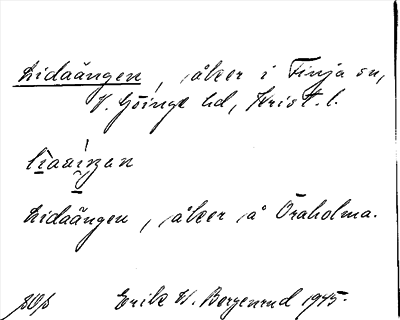 Lidaängen, åker i Finja sn,
V. Göinge hd, Krist. l.
Lidaängen, åker å Öraholma.
Erik W. Bergenrud 1945.